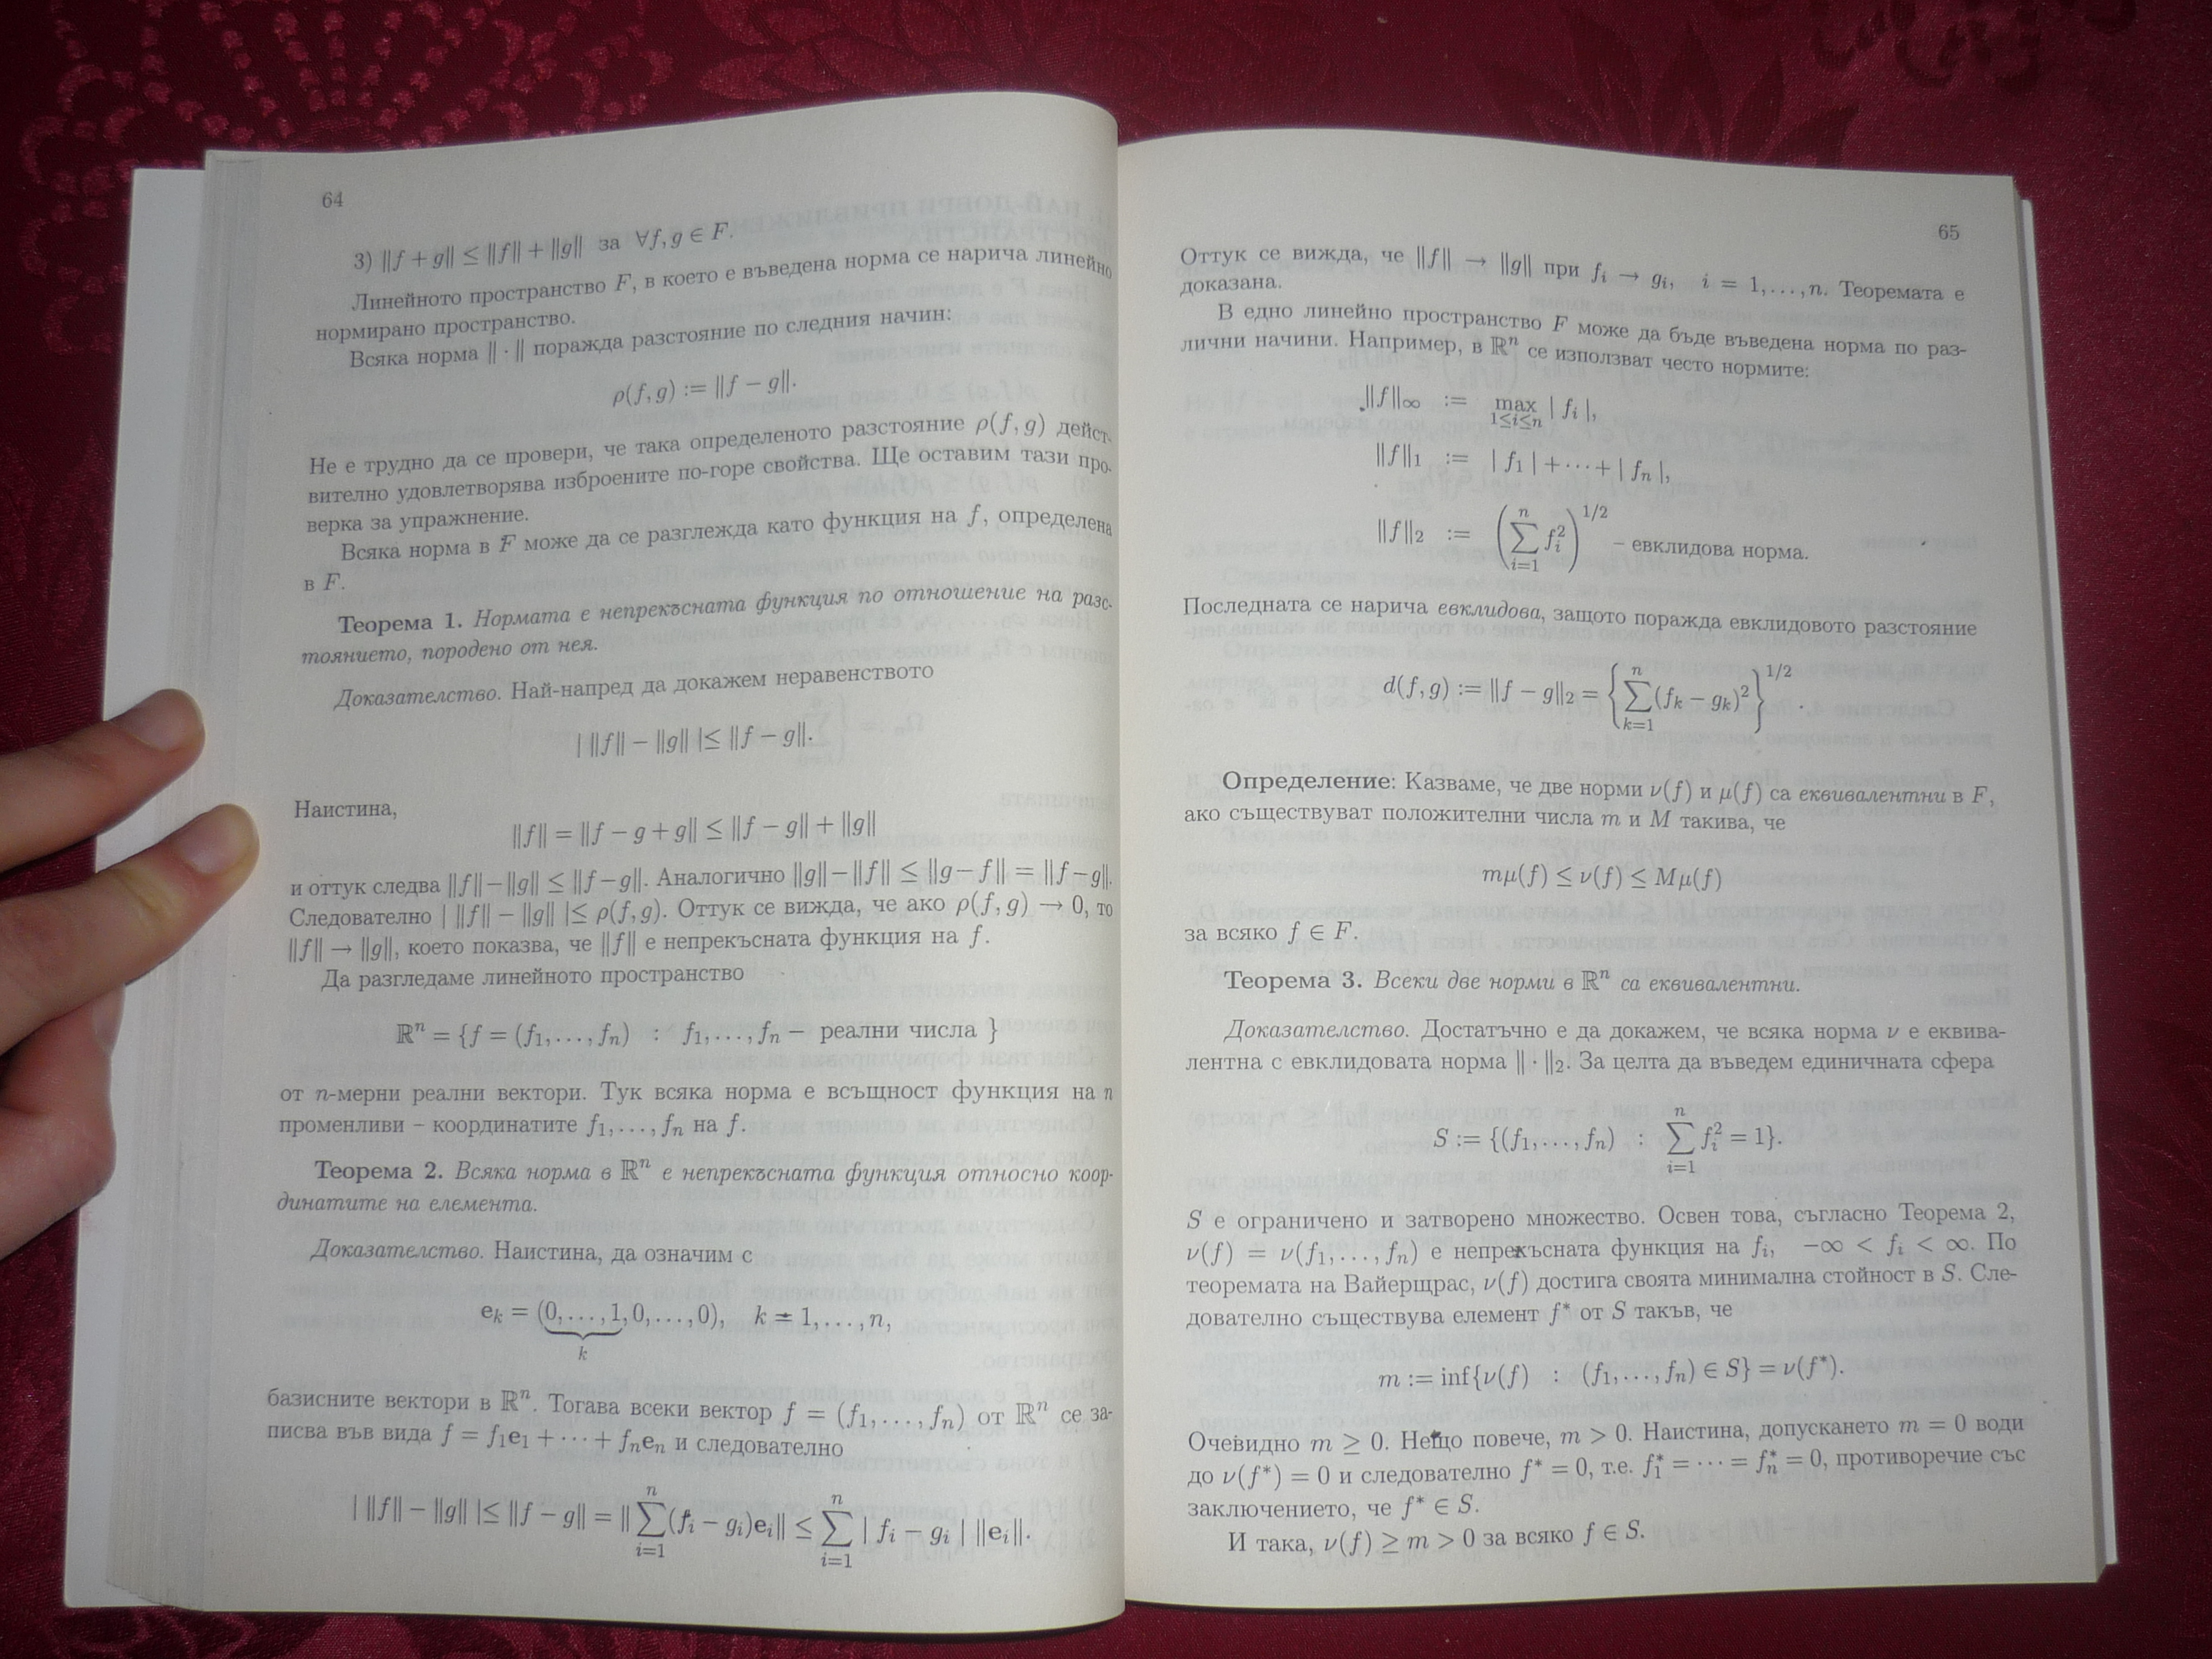 64
3) ‖f + g‖ ≤ ‖f‖ + ‖g‖ за ∀f, g ∈ F.
Линейното пространство F, в което е въведена норма се нарича линейно
нормирано пространство.
Всяка норма ‖ · ‖ поражда разстояние по следния начин:
ρ(f, g) := ‖f − g‖.
Не е трудно да се провери, че така определеното разстояние ρ(f, g) дейст-
вително удовлетворява изброените по-горе свойства. Ще оставим тази про-
верка за упражнение.
Всяка норма в F може да се разглежда като функция на f, определена
в F.
Теорема 1. Нормата е непрекъсната функция по отношение на разс-
тоянието, породено от нея.
Доказателство. Най-напред да докажем неравенството
| ‖f‖ − ‖g‖ |≤ ‖f − g‖.
Наистина,
‖f‖ = ‖f − g + g‖ ≤ ‖f − g‖ + ‖g‖
и оттук следва ‖f‖−‖g‖ ≤ ‖f−g‖. Аналогично ‖g‖−‖f‖ ≤ ‖g−f‖ = ‖f−g‖.
Следователно | ‖f‖ − ‖g‖ |≤ ρ(f, g). Оттук се вижда, че ако ρ(f, g) → 0, то
‖f‖ → ‖g‖, което показва, че ‖f‖ е непрекъсната функция на f.
Да разгледаме линейното пространство
ℝⁿ = {f = (f₁, …, fₙ) : f₁, …, fₙ − реални числа }
от n-мерни реални вектори. Тук всяка норма е всъщност функция на n
променливи – координатите f₁, …, fₙ на f.
Теорема 2. Всяка норма в ℝⁿ е непрекъсната функция относно коор-
динатите на елемента.
Доказателство. Наистина, да означим с
eₖ = (0, …, 1, 0, …, 0), k = 1, …, n,
k
базисните вектори в ℝⁿ. Тогава всеки вектор f = (f₁, …, fₙ) от ℝⁿ се за-
писва във вида f = f₁e₁ + ⋯ + fₙeₙ и следователно
| ‖f‖ − ‖g‖ |≤ ‖f − g‖ = ‖ ∑ᵢ₌₁ⁿ (fᵢ − gᵢ)eᵢ‖ ≤ ∑ᵢ₌₁ⁿ | fᵢ − gᵢ | ‖eᵢ‖.
65
Оттук се вижда, че ‖f‖ → ‖g‖ при fᵢ → gᵢ, i = 1, …, n. Теоремата е
доказана.
В едно линейно пространство F може да бъде въведена норма по раз-
лични начини. Например, в ℝⁿ се използват често нормите:
‖f‖∞ := max 1≤i≤n | fᵢ |,
‖f‖₁ := | f₁ | + ⋯ + | fₙ |,
‖f‖₂ := (∑ᵢ₌₁ⁿ fᵢ²)^1/2 – евклидова норма.
Последната се нарича евклидова, защото поражда евклидовото разстояние
d(f, g) := ‖f − g‖₂ = {∑ₖ₌₁ⁿ (fₖ − gₖ)²}^1/2.
Определение: Казваме, че две норми ν(f) и μ(f) са еквивалентни в F,
ако съществуват положителни числа m и M такива, че
mμ(f) ≤ ν(f) ≤ Mμ(f)
за всяко f ∈ F.
Теорема 3. Всеки две норми в ℝⁿ са еквивалентни.
Доказателство. Достатъчно е да докажем, че всяка норма ν е еквива-
лентна с евклидовата норма ‖ · ‖₂. За целта да въведем единичната сфера
S := {(f₁, …, fₙ) : ∑ᵢ₌₁ⁿ fᵢ² = 1}.
S е ограничено и затворено множество. Освен това, съгласно Теорема 2,
ν(f) = ν(f₁, …, fₙ) е непрекъсната функция на fᵢ, −∞ < fᵢ < ∞. По
теоремата на Вайерщрас, ν(f) достига своята минимална стойност в S. Сле-
дователно съществува елемент f* от S такъв, че
m := inf{ν(f) : (f₁, …, fₙ) ∈ S} = ν(f*).
Очевидно m ≥ 0. Нещо повече, m > 0. Наистина, допускането m = 0 води
до ν(f*) = 0 и следователно f* = 0, т.е. f₁* = ⋯ = fₙ* = 0, противоречие със
заключението, че f* ∈ S.
И така, ν(f) ≥ m > 0 за всяко f ∈ S.